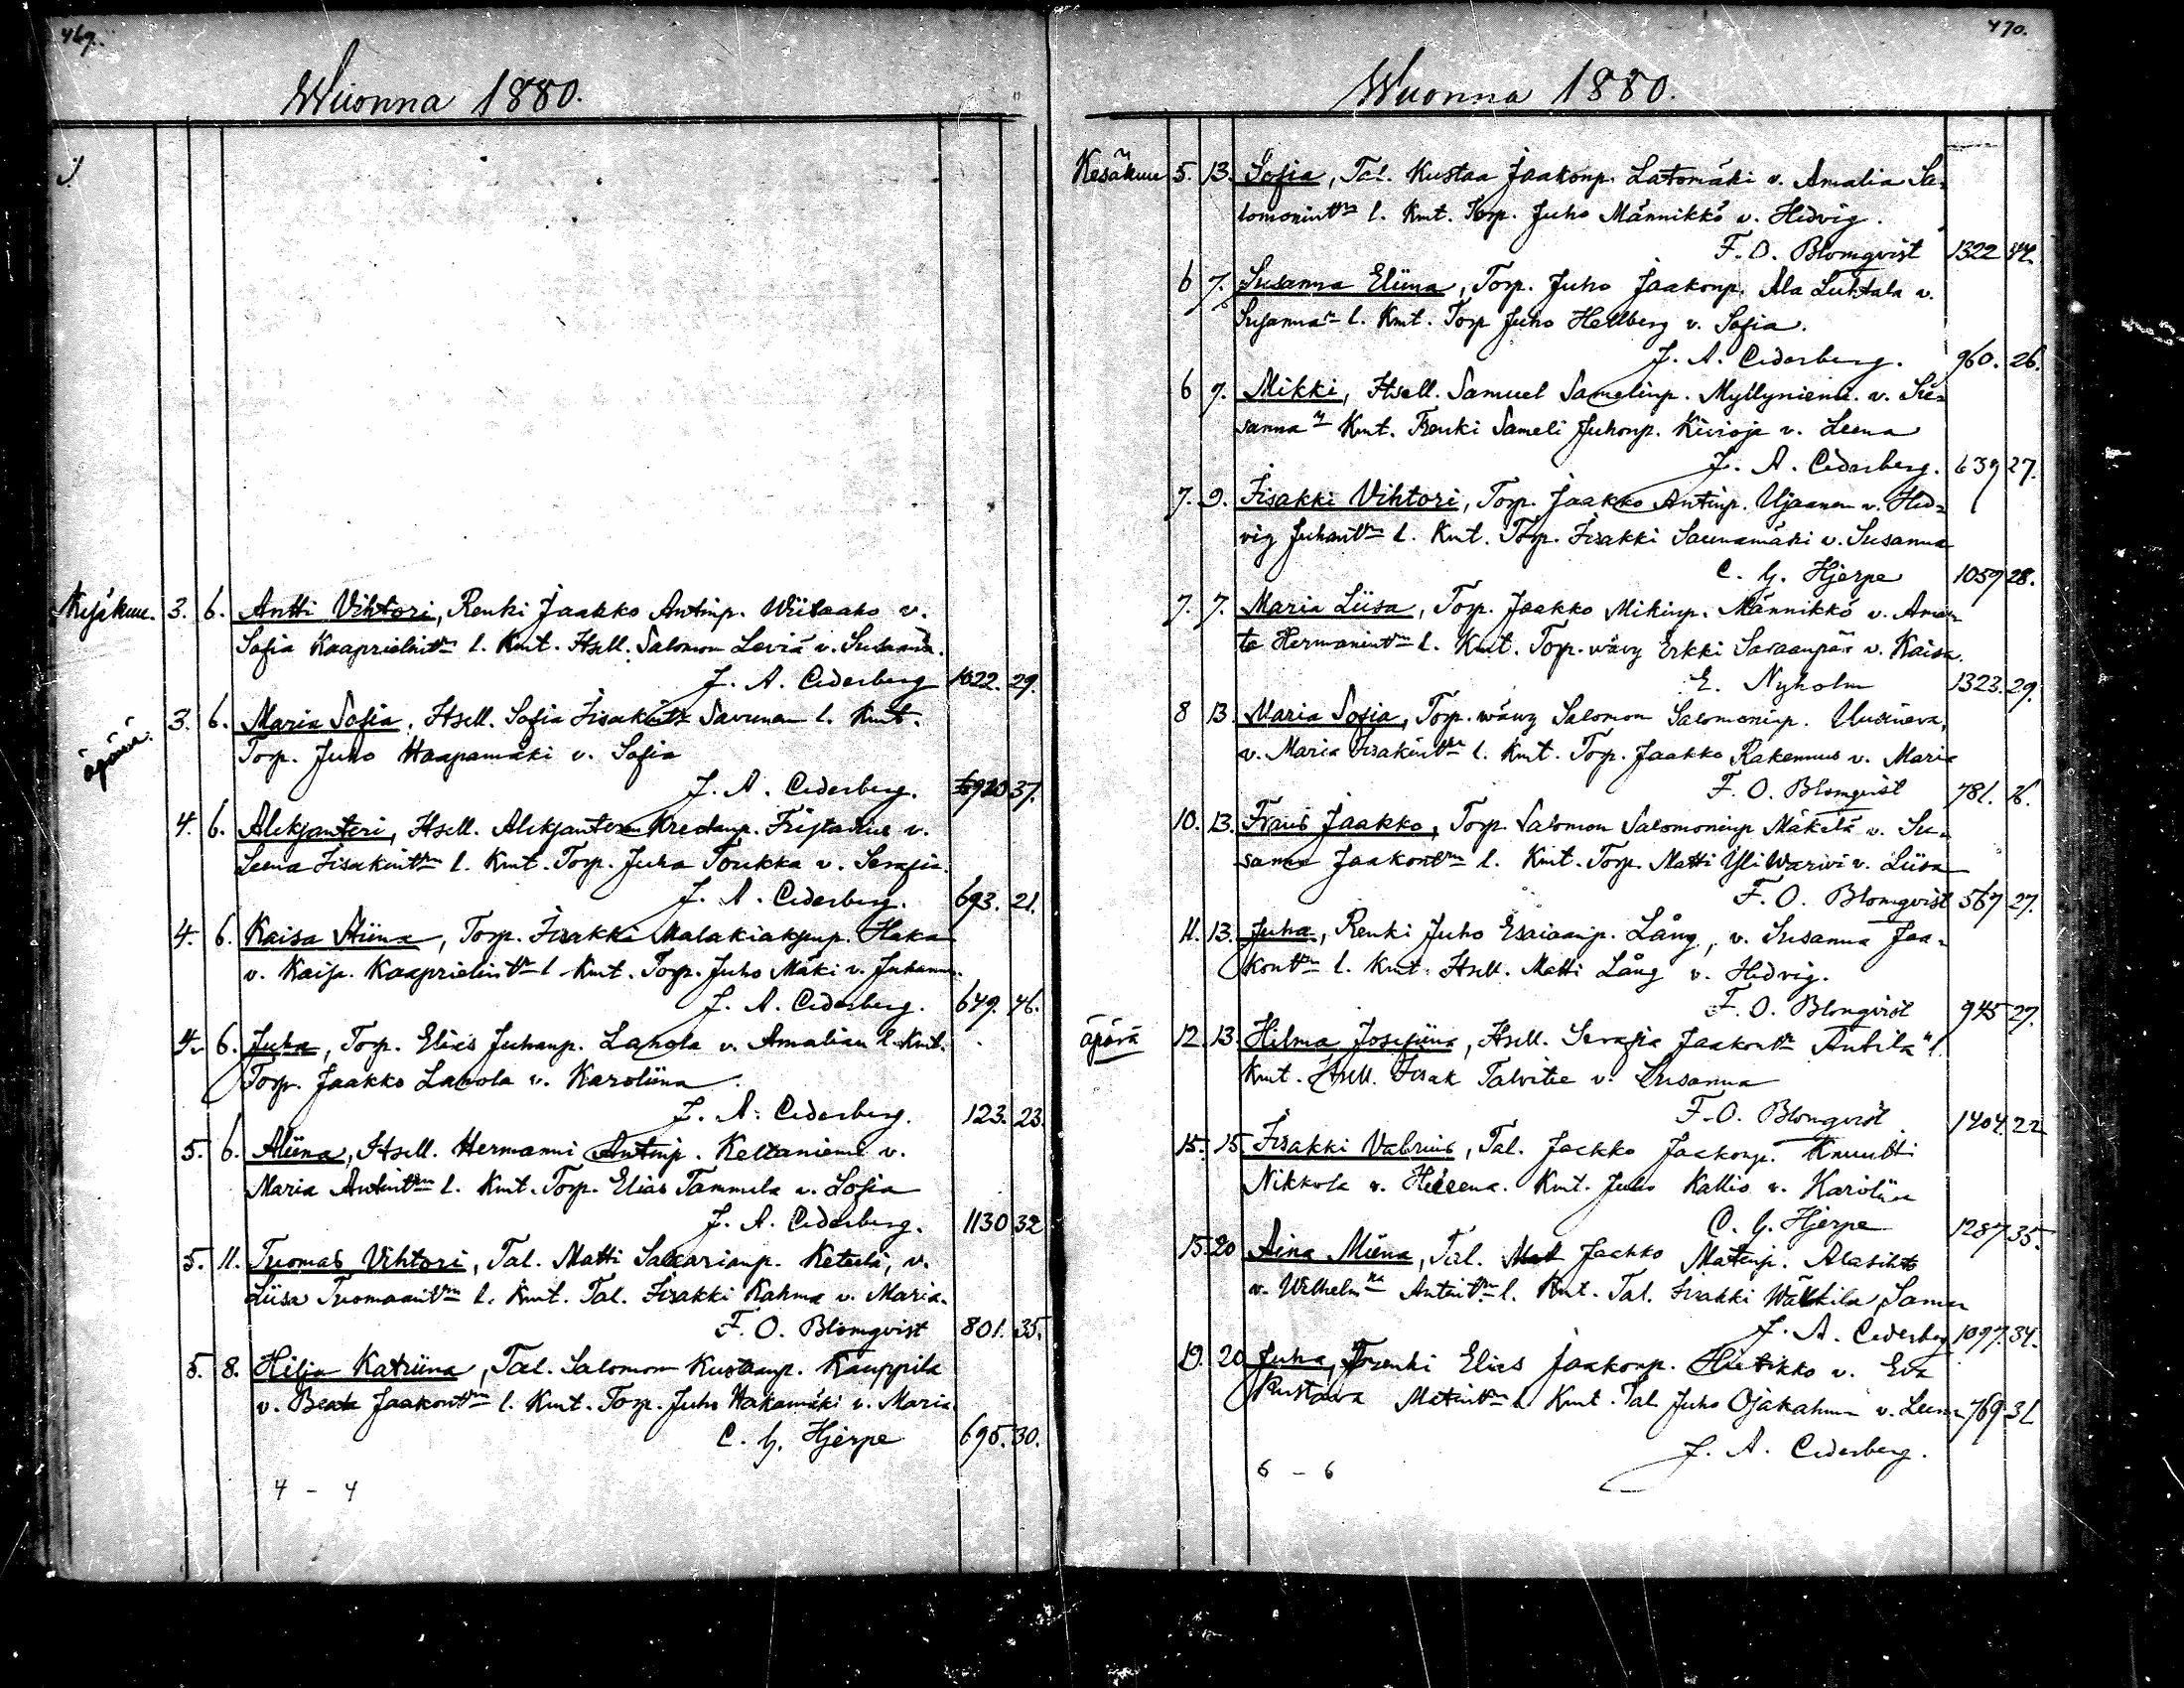 469.
Wuonna 1880.
Kesäkuu. 3. 6. Antti Vihtori, Renki Jaakko Antinp. v.
Sofia Kaaprielint:n l. Kmt. Itsell. Salomon Leviä v. Susanna.
J. A. Cederberg 1022. 29.
äpärä. 3. 6. Maria Sofia, Itsell. Sofia Iisakint: Savunen l. Kmt.
Torp. Juho Haapamäki v. Sofia
J. A. Cederberg. 920 37.
4. 6. Aleksanteri, Itsell. v.
Leena Iisakint:n l. Kmt. Torp. Juha Toukka v. Serafia.
J. A. Cederberg. 693. 21.
4. 6. Kaisa Miina, Torp. Iisakki Malakiaksenp. Haka
v. Kaisa Kaaprielint:n l. Kmt. Torp. Juho Mäki v. Juhanna.
J. A. Cederberg. 649. 46.
4. 6. Juha, Torp. Elias Juhanp. Lahola v. Amalian l. Kmt.
Torp. Jaakko Lahola v. Karoliina.
J. A. Cederberg. 123. 23.
5. 6. Aliina, Itsell. Hermanni Antinp. Keltaniemi v.
Maria Antint:n l. Kmt. Torp. Elias Tammela v. Sofia
J. A. Cederberg. 1130 32
5. 11. Tuomas Vihtori, Tal. Matti Sakarianp. Ketola, v.
Liisa Tuomaant:n l. Kmt. Tal. Iisakki Kahma v. Maria.
F. O. Blomqvist 801. 35.
5. 8. Hilja Katriina, Tal. Salomon Kustaanp. Kauppila
v. Beata Jaakont:n l. Kmt. Torp. Juho Hakamäki v. Maria.
C. G. Hjerpe 695. 30.
4 - 4
470.
Wuonna 1880.
Kesäkuu 5. 13. Sofia, Tal. Kustaa Jaakonp. Latomäki v. Amalia Sa-
lomonint:n l. Kmt. Torp. Juho Männikkö v. Hedvig.
F. O. Blomqvist 1322 44.
6 7. Susanna Eliina, Torp. Juho Jaakonp. Ala Luhtala v.
Susanna:n l. Kmt. Torp Juho Hellberg v. Sofia.
J. A. Cederberg. 960. 26.
6 7. Mikki, Itsell. Samuel Samelinp. Myllyniemi. v. Su-
sanna:n Kmt. Renki Sameli Juhonp. Kivioja v. Leena
J. A. Cederberg. 639 27.
7. 9. Iisakki Vihtori, Torp. Jaakko Antinp. Ujaanen v. Hed-
vig Juhant:n l. Kmt. Torp. Iisakki Saunamäki v. Susanna
C. G. Hjerpe 1059 28.
7. 7. Maria Liisa, Torp. Jaakko Mikinp. Männikkö v. Aman-
ta Hermanint:n l. Kmt. Torp. wäwy Erkki Saraanpää v. Kaisa.
E. Nyholm 1323. 29.
8 13 Maria Sofia, Torp. wäwy Salomon Salomoninp. Uusineva,
v. Maria Iisakint:n l. Kmt. Torp. Jaakko Rakennus v. Maria
F. O. Blomqvist 781. 26.
10. 13. Frans Jaakko, Torp. Salomon Salomoninp Mäkelä v. Su-
sanna Jaakont:n l. Kmt. Torp. Matti YliWarvi v. Liisa
F. O. Blomqvist 567 27.
11. 13. Juha, Renki Juho Esaiaanp. Lång, v. Susanna Jaa-
kont:n l. Kmt. Itsell. Matti Lång v. Hedvig.
F. O. Blomqvist 945 27.
äpärä 12 13. Hilma Josefiina, Itsell. Serafia Jaakont:n Antila:n l.
Kmt. Itsell. Iisak Talvitie v. Susanna
F. O. Blomqvist 1404. 22
15. 15 Iisakki Valerius, Tal. Jaakko Jaakonp. Knuutti
Nikkola v. Heleena. Kmt. Juho Kallio v. Karoliina
C. G. Hjerpe 1287. 35.
15. 20 Aina Miina, Tal. Jaakko Matinp. Alasihto
v. Wilhelm:na Antint:n l. Kmt. Tal. Iisakki Wälkkilä, Sanna
J. A. Cederberg 1097. 34.
19. 20 Juha, Renki Elias Jaakonp. Huttikko v. Eva
Kustava Matint:n l. Kmt. Tal Juho Ojakahma v. Leena 769. 31
J. A. Cederberg.
6 - 6